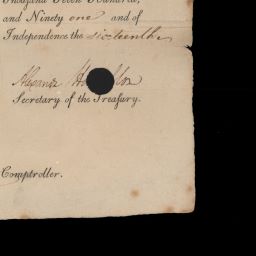 Thousand Seven Hundred,
and Ninety one and of
Independence the sixteenth.
Alexande H lton
Secretary of the Treasury.
Comptroller.